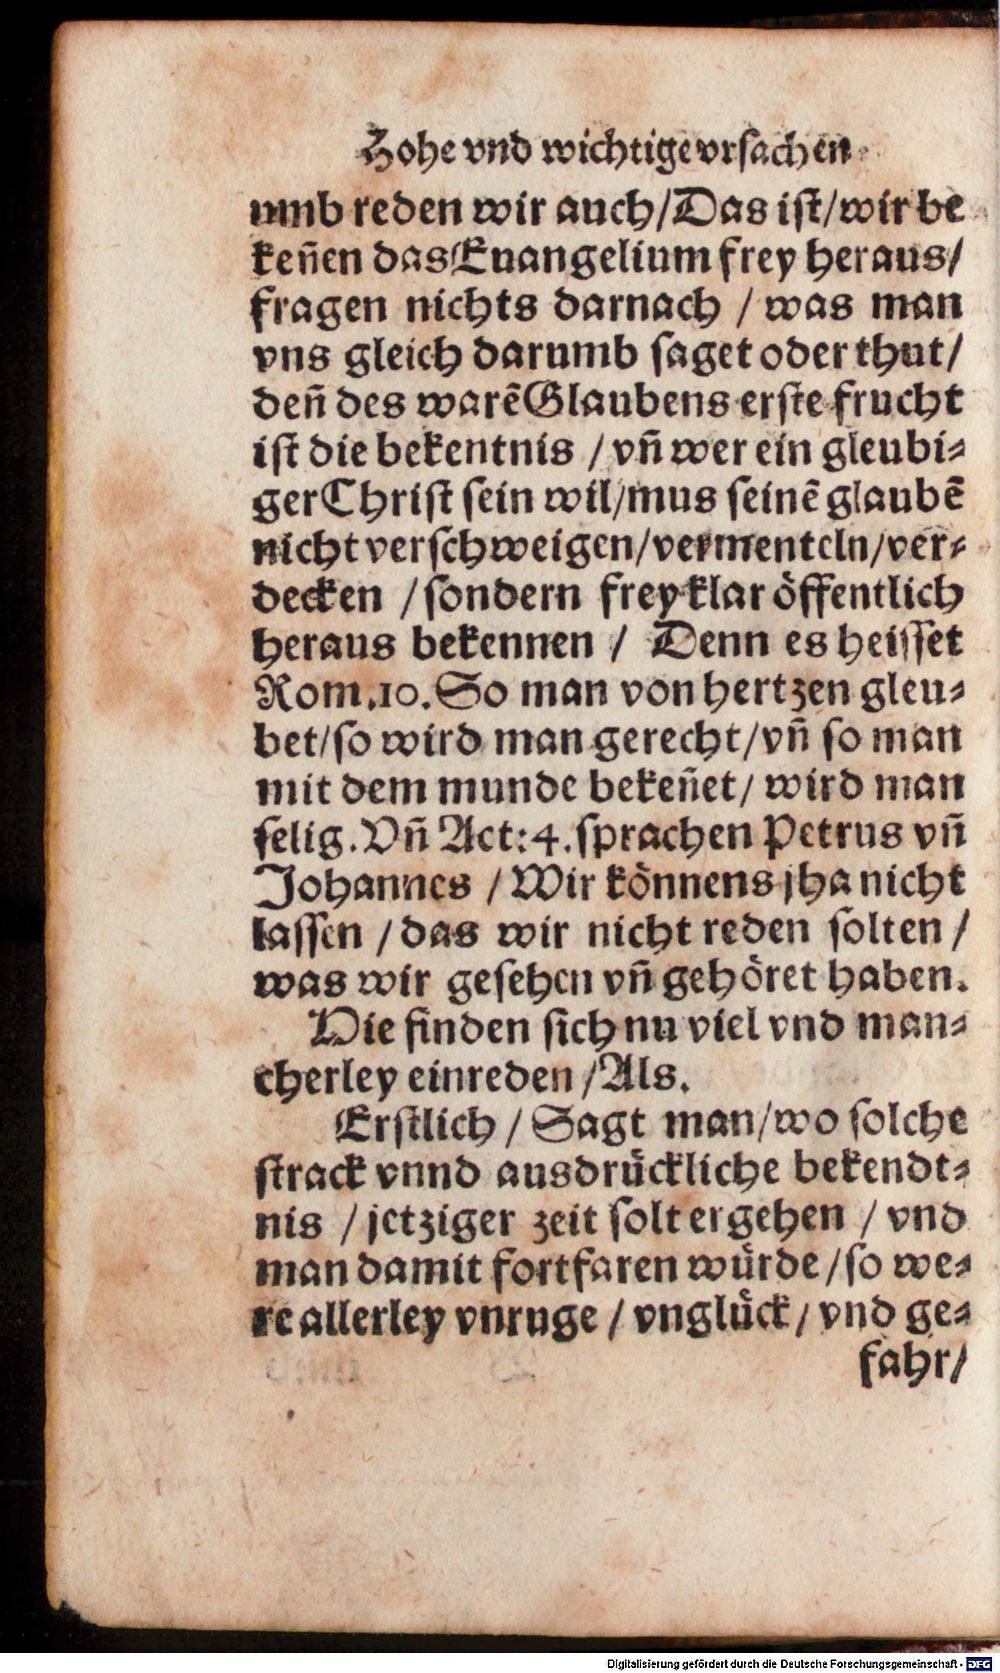 Hohe vnd wichtige vrsachen
umb reden wir auch/Das ist/wir be
keñen das Euangelium frey heraus/
fragen nichts darnach / was man
vns gleich darumb saget oder thut/
deñ des warē Glaubens erste frucht
ist die bekentnis / vñ wer ein gleubi-
ger Christ sein wil/mus seinē glaubē
nicht verschweigen/vermenteln/ver-
decken / sondern frey klar öffentlich
heraus bekennen / Denn es heisset
Rom.10. So man von hertzen gleu-
bet/so wird man gerecht/vñ so man
mit dem munde bekeñet/ wird man
selig. Vñ Act: 4. sprachen Petrus vñ
Johannes / Wir könnens jha nicht
lassen / das wir nicht reden solten /
was wir gesehen vñ gehöret haben.
Hie finden sich nu viel vnd man-
cherley einreden / Als.
Erstlich / Sagt man/wo solche
strack vnnd ausdrückliche bekendt-
nis / jetziger zeit solt ergehen / vnd
man damit fortfaren würde / so we-
re allerley vnruge / vnglück / vnd ge-
fahr/
Digitalisierung gefördert durch die Deutsche Forschungsgemeinschaft - DFG